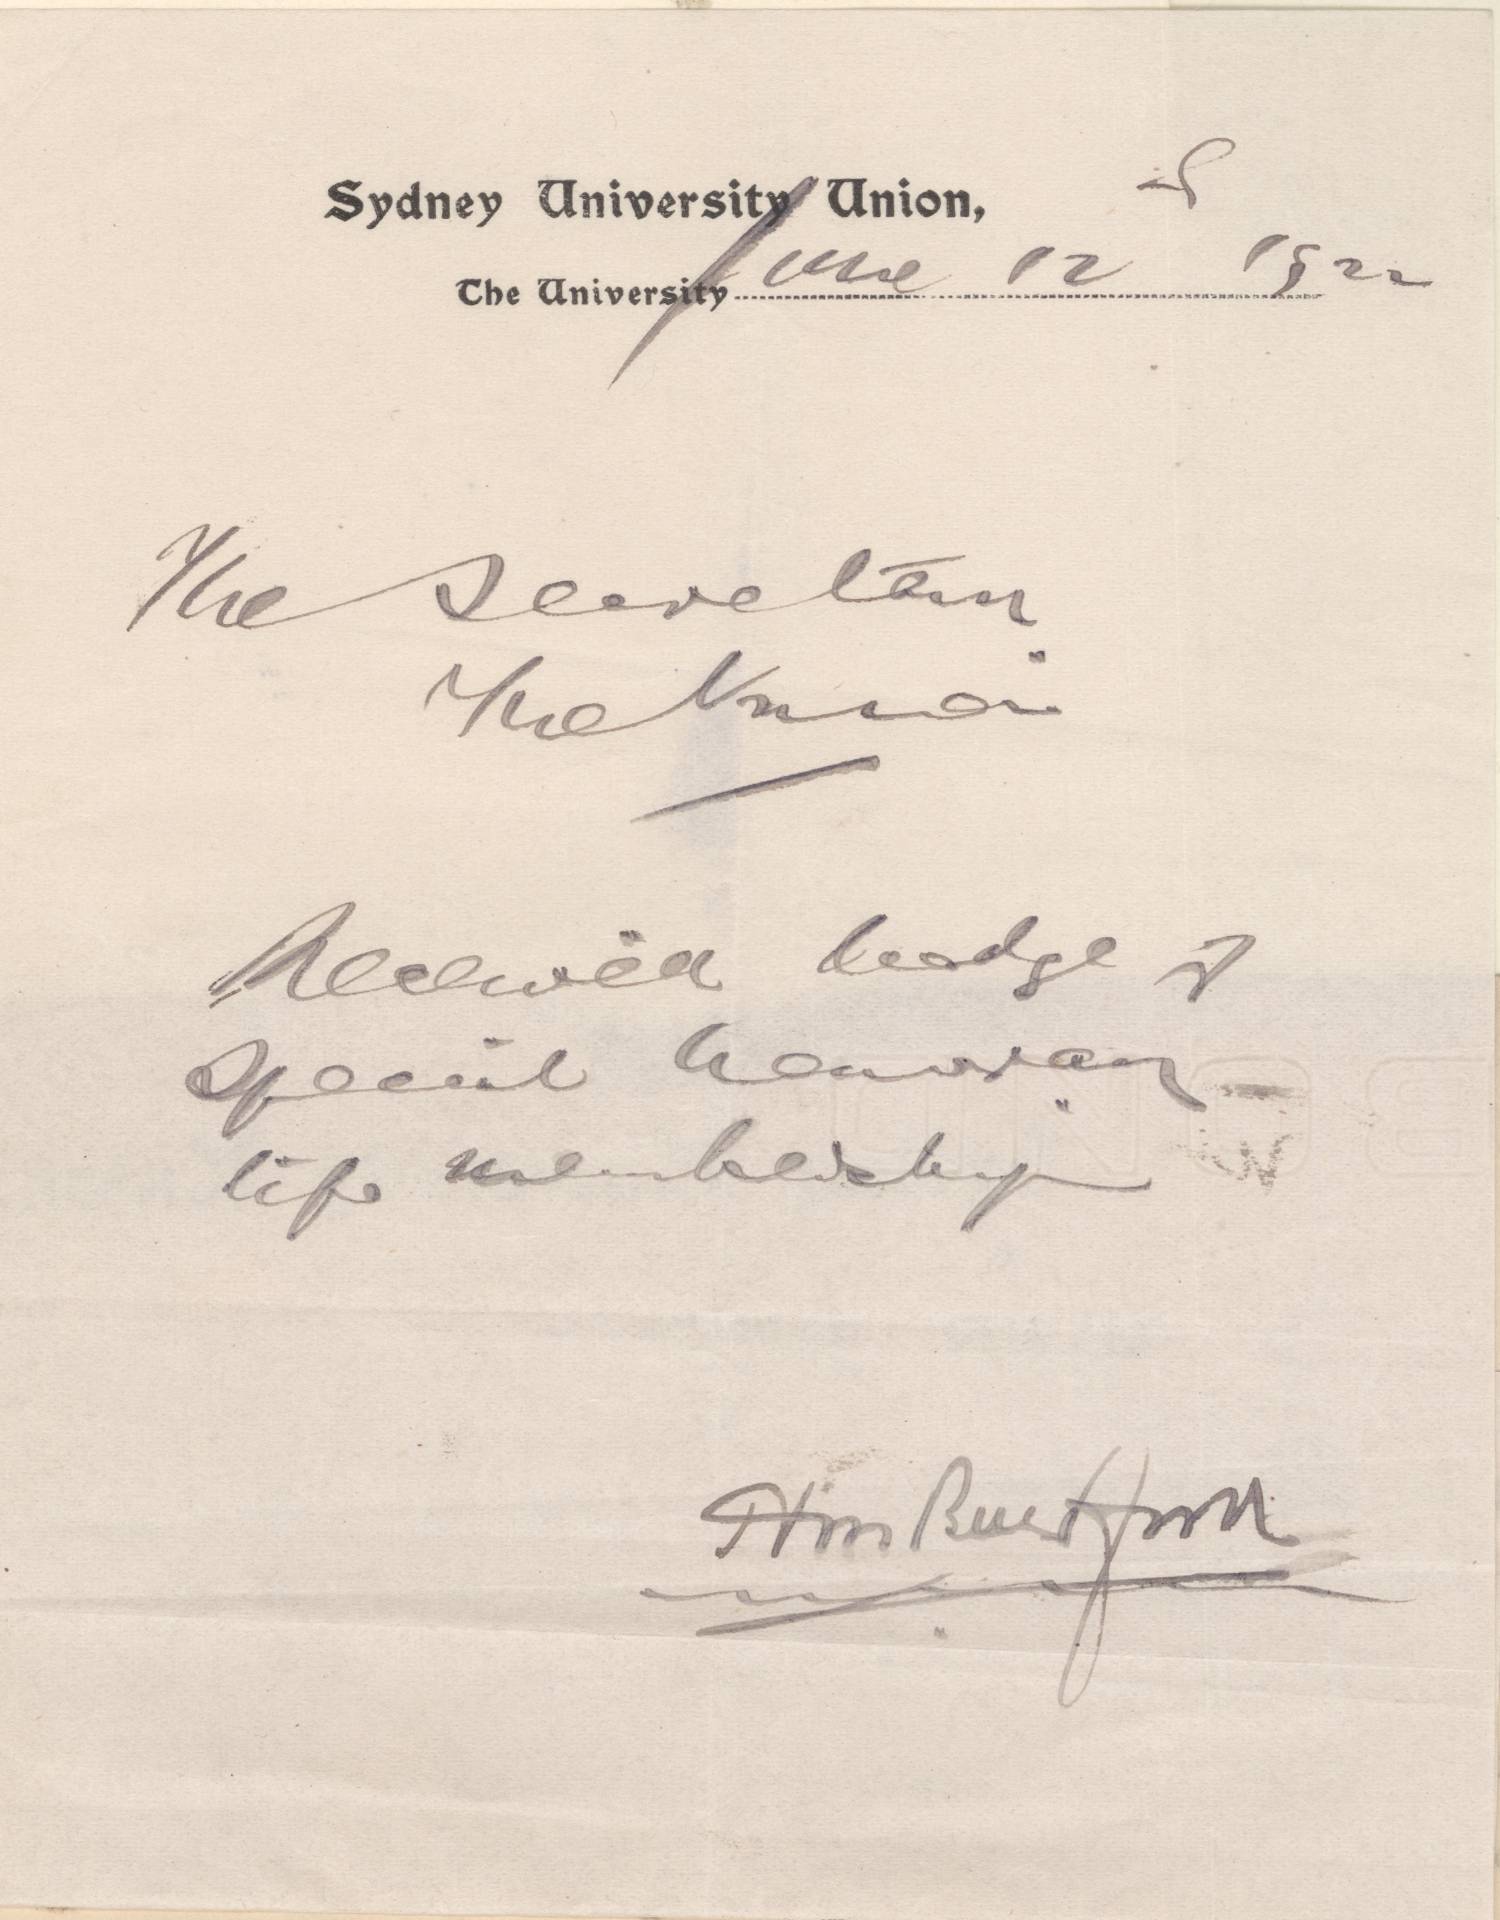 Sydney University Union,
The University June 12 1922
The Secretary
The Union
Received badge of
special honorary
life membership
BOND